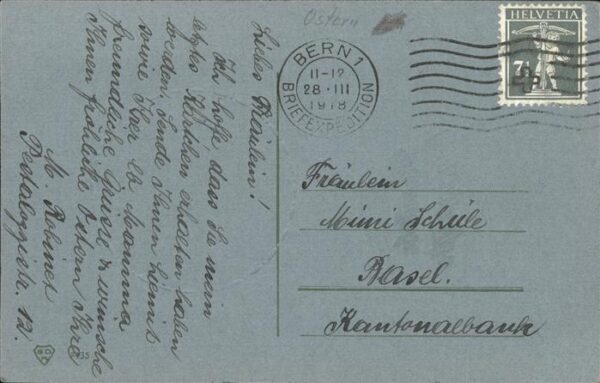 Ostern
HELVETIA
7½
BERN 1
11-12
28·III
1918
BRIEFEXPEDITION
Liebes Fräulein!
Ich hoffe dass Sie mein
letztes Kärtchen erhalten haben
werden. Sende Ihnen hiemit
sowie Ihrer Lb Mamma
freundliche Grüsse & wünsche
Ihnen fröhliche Ostern Ihre
M. Robinet
Pestalozzistr. 12.
Fräulein
Mimi Schüle
Basel.
Kantonalbank